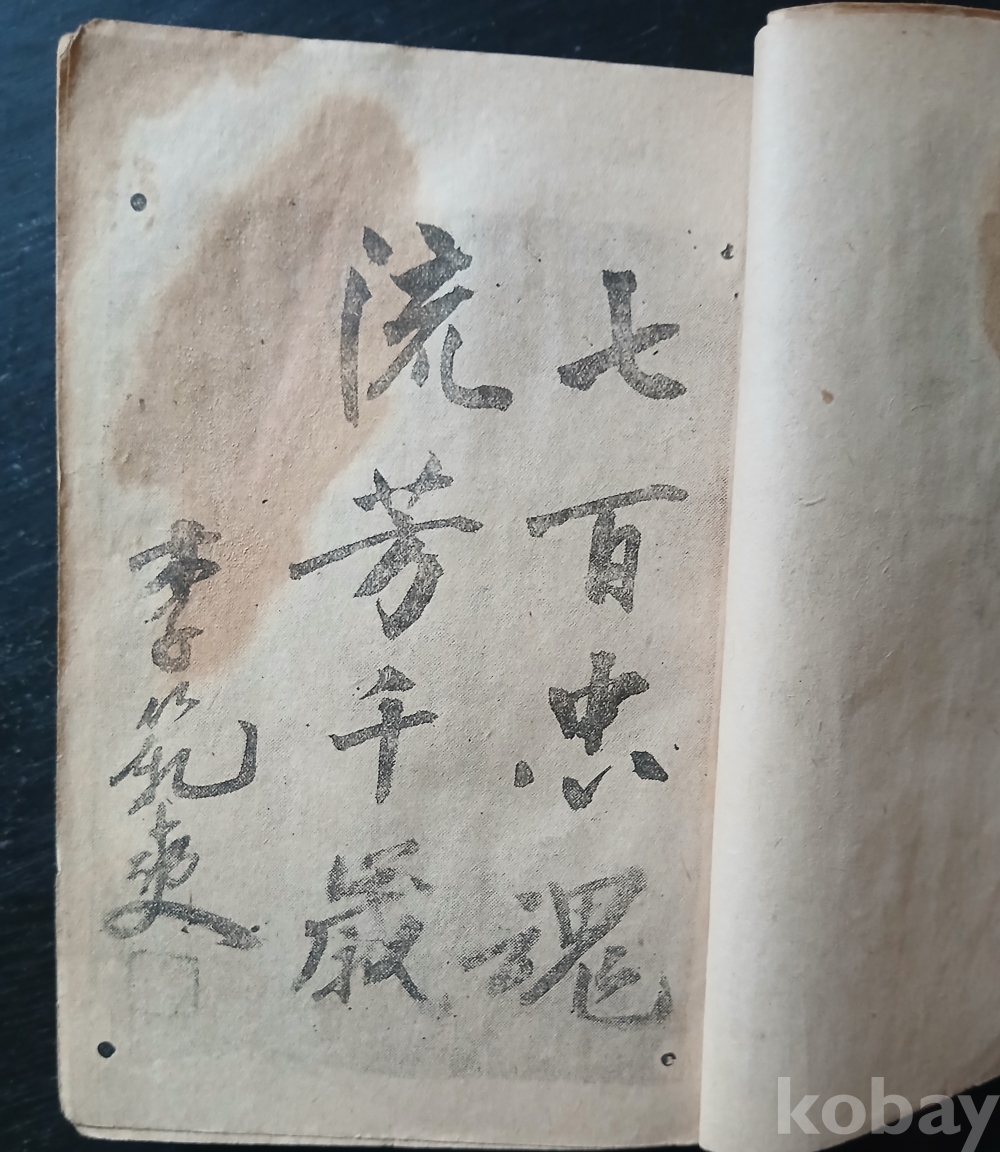 七百忠魂
流芳千歲
李範奭
kobay